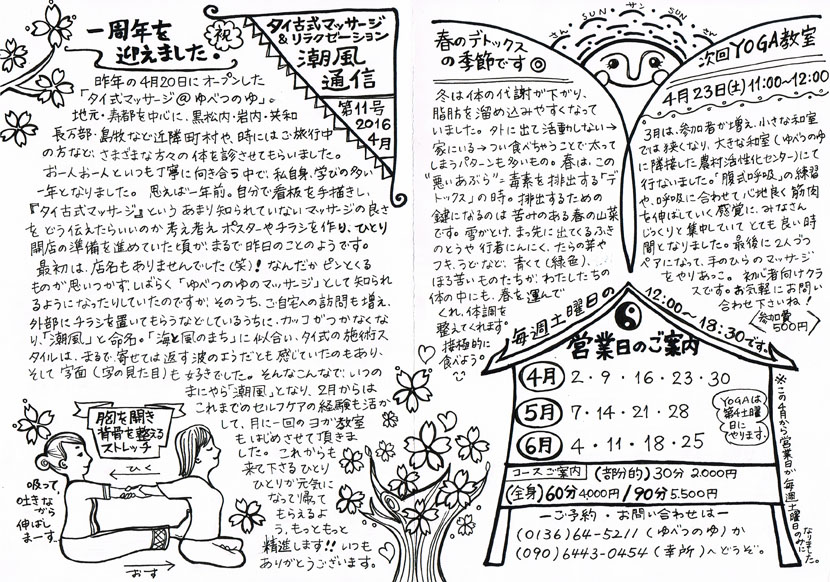 一周年を
迎えました。
祝
タイ古式マッサージ
&リラクゼーション
潮風
通信
第11号
2016
4月
昨年の4月20日にオープンした
「タイ式マッサージ@ゆべつのゆ」。
地元・寿都を中心に、黒松内・岩内・共和
長万部・島牧など近隣町村や、時にはご旅行中
の方など、さまざまな方々の体を診させてもらいました。
お一人お一人といつも丁寧に向き合う中で、私自身、学びの多い
一年となりました。 思えば一年前。自分で看板を手描きし、
『タイ古式マッサージ』というあまり知られていないマッサージの良さ
をどう伝えたらいいのか考え考えポスターやチラシを作り、ひとり
開店の準備を進めていた頃が、まるで昨日のことのようです。
最初は、店名もありませんでした(笑)! なんだかピンとくる
ものが思いつかず、しばらく「ゆべつのゆのマッサージ」として知られ
るようになったりしていたのですが、そのうち、ご自宅への訪問も増え、
外部にチラシを置いてもらうなどしているうちに、カッコがつかなくな
り、「潮風」と命名。「海と風のまち」に似合い、タイ式の施術ス
タイルは、まるで、寄せては返す波のようだとも感じていたのもあり、
そして字面(字の見た目)も好きでした。そんなこんなで、いつの
まにやら「潮風」となり、2月からは
これまでのセルフケアの経験も活か
して、月に一回のヨガ教室
もはじめさせて頂きま
した。これからも
来て下さるひとり
ひとりが元気に
なって帰って
もらえるよ
う、もっともっと
精進します!!いつも
ありがとうございます。
胸を開き
背骨を整える
ストレッチ
ひく
吸って、
吐きな
がら
伸ばし
まーす。
おす
春のデトックス
の季節です◎
さん SUN サン SUN さん
冬は体の代謝が下がり、
脂肪を溜め込みやすくなって
いました。外に出て活動しない→
家にいる→つい食べちゃうことで太って
しまうパターンも多いもの。春は、この
"悪いあぶら"=毒素を排出する「デ
トックス」の時。排出するための
鍵になるのは 苦みのある春の山菜
です。雪がとけ、まっ先に出てくるふき
のとうや行者にんにく、たらの芽や
フキ、うどなど、青くて(緑色)、
ほろ苦いものたちが、わたしたちの
体の中にも、春を運んで
くれ、体調を
整えてくれます。
積極的に
食べよう。
次回YOGA教室
4月23日(土)11:00〜12:00
3月は、参加者が増え、小さな和室
では狭くなり、大きな和室(ゆべつのゆ
に隣接した農村活性化センター)にて
行ないました。「腹式呼吸」の練習
や、呼吸に合わせて心地良く筋肉
を伸ばしていく感覚に、みなさん
じっくりと集中していてとても良い時
間となりました。最後に2人づつ
ペアになって、手のひらのマッサージ
をやりあっこ。 初心者向けクラ
スです。お気軽にお問い
合わせ下さいね!
参加費
500円
毎週土曜日の 12:00〜18:30です。
営業日のご案内
4月 2・9・16・23・30
5月 7・14・21・28
6月 4・11・18・25
YOGAは
第4土曜
日に
やります。
コースご案内 (部分的)30分 2,000円
(全身)60分 4,000円/90分 5,500円
ーご予約・お問い合わせはー
(0136)64-5211(ゆべつのゆ)か
(090)6443-0454(幸所)へどうぞ。
※この4月から営業日が毎週土曜日のみに
なりました。